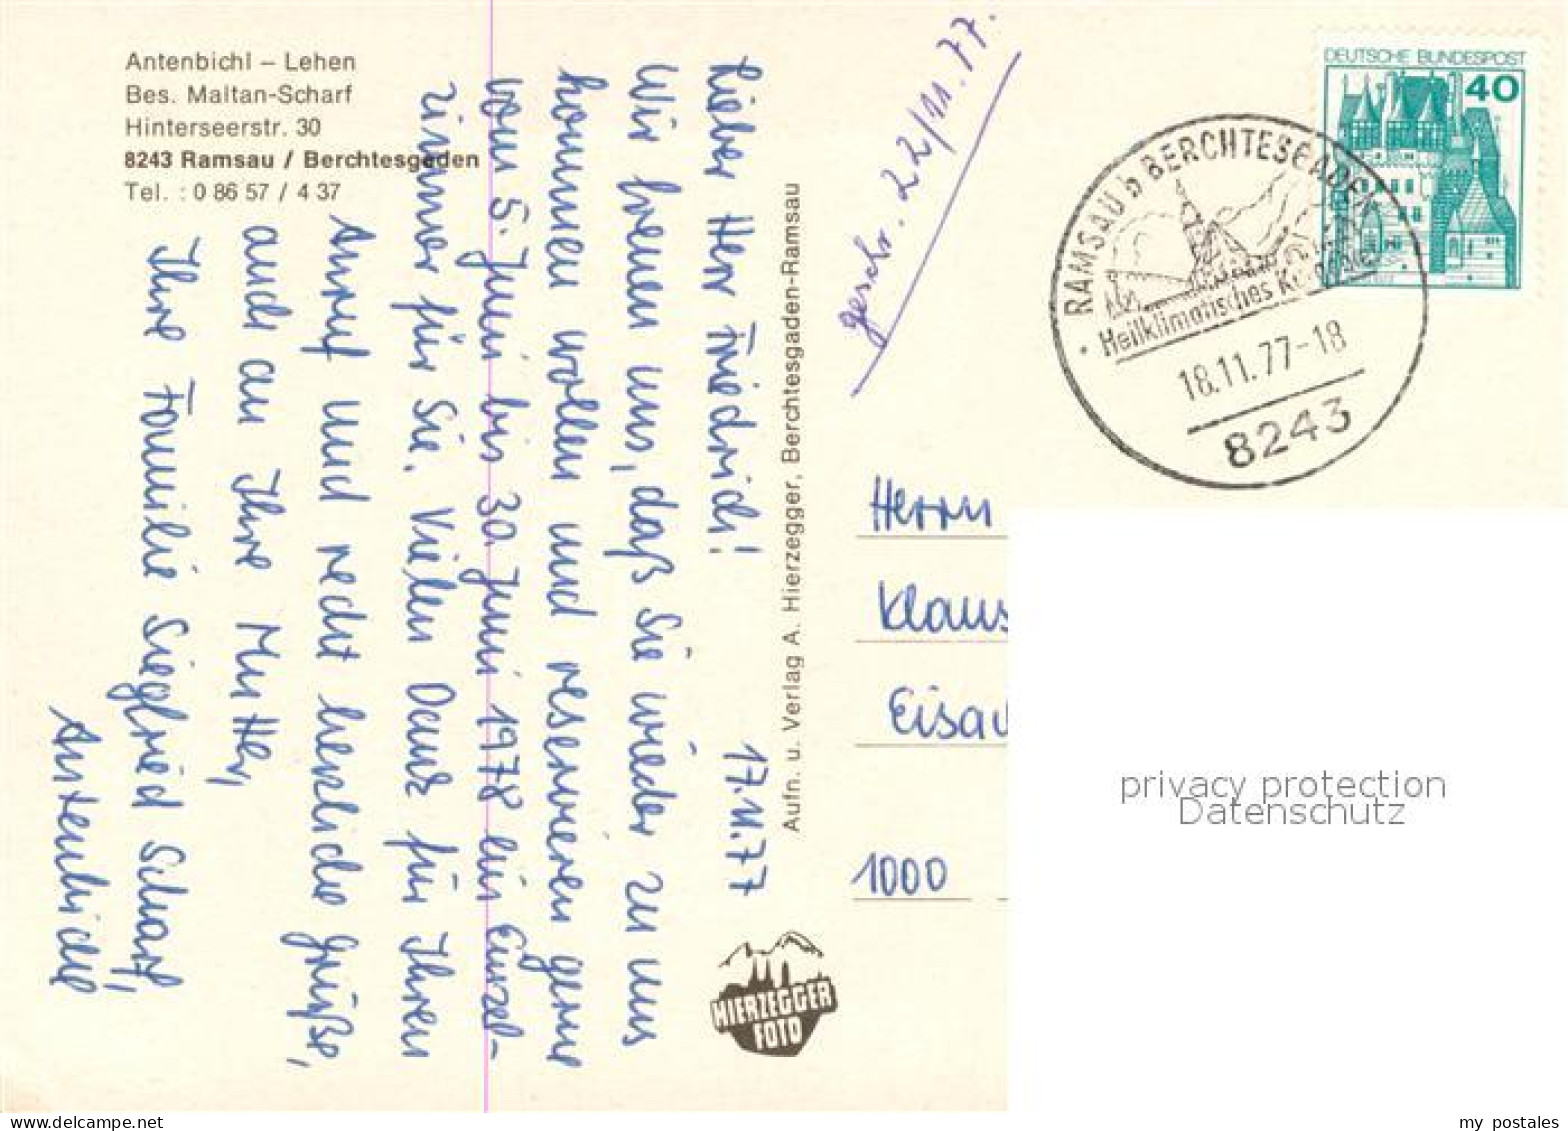 Antenbichl – Lehen
Bes. Maltan-Scharf
Hinterseerstr. 30
8243 Ramsau / Berchtesgaden
Tel. : 0 86 57 / 4 37
17.11.77
Lieber Herr Friedrich!
Wir freuen uns, daß Sie wieder zu uns
kommen wollen und reservieren gerne
vom 5. Juni bis 30. Juni 1978 ein Einzel-
zimmer für Sie. Vielen Dank für Ihren
Anruf und recht herzliche Grüße,
auch an Ihre Mutter,
Ihre Familie Siegfried Scharf,
Antenbichl
Aufn. u. Verlag A. Hierzegger, Berchtesgaden-Ramsau
HIERZEGGER
FOTO
geschr. 22/11.77.
DEUTSCHE BUNDESPOST
40
RAMSAU b BERCHTESGADEN
Heilklimatisches
18.11.77-18
8243
Herrn
Klaus
1000
privacy protection
Datenschutz
my postales